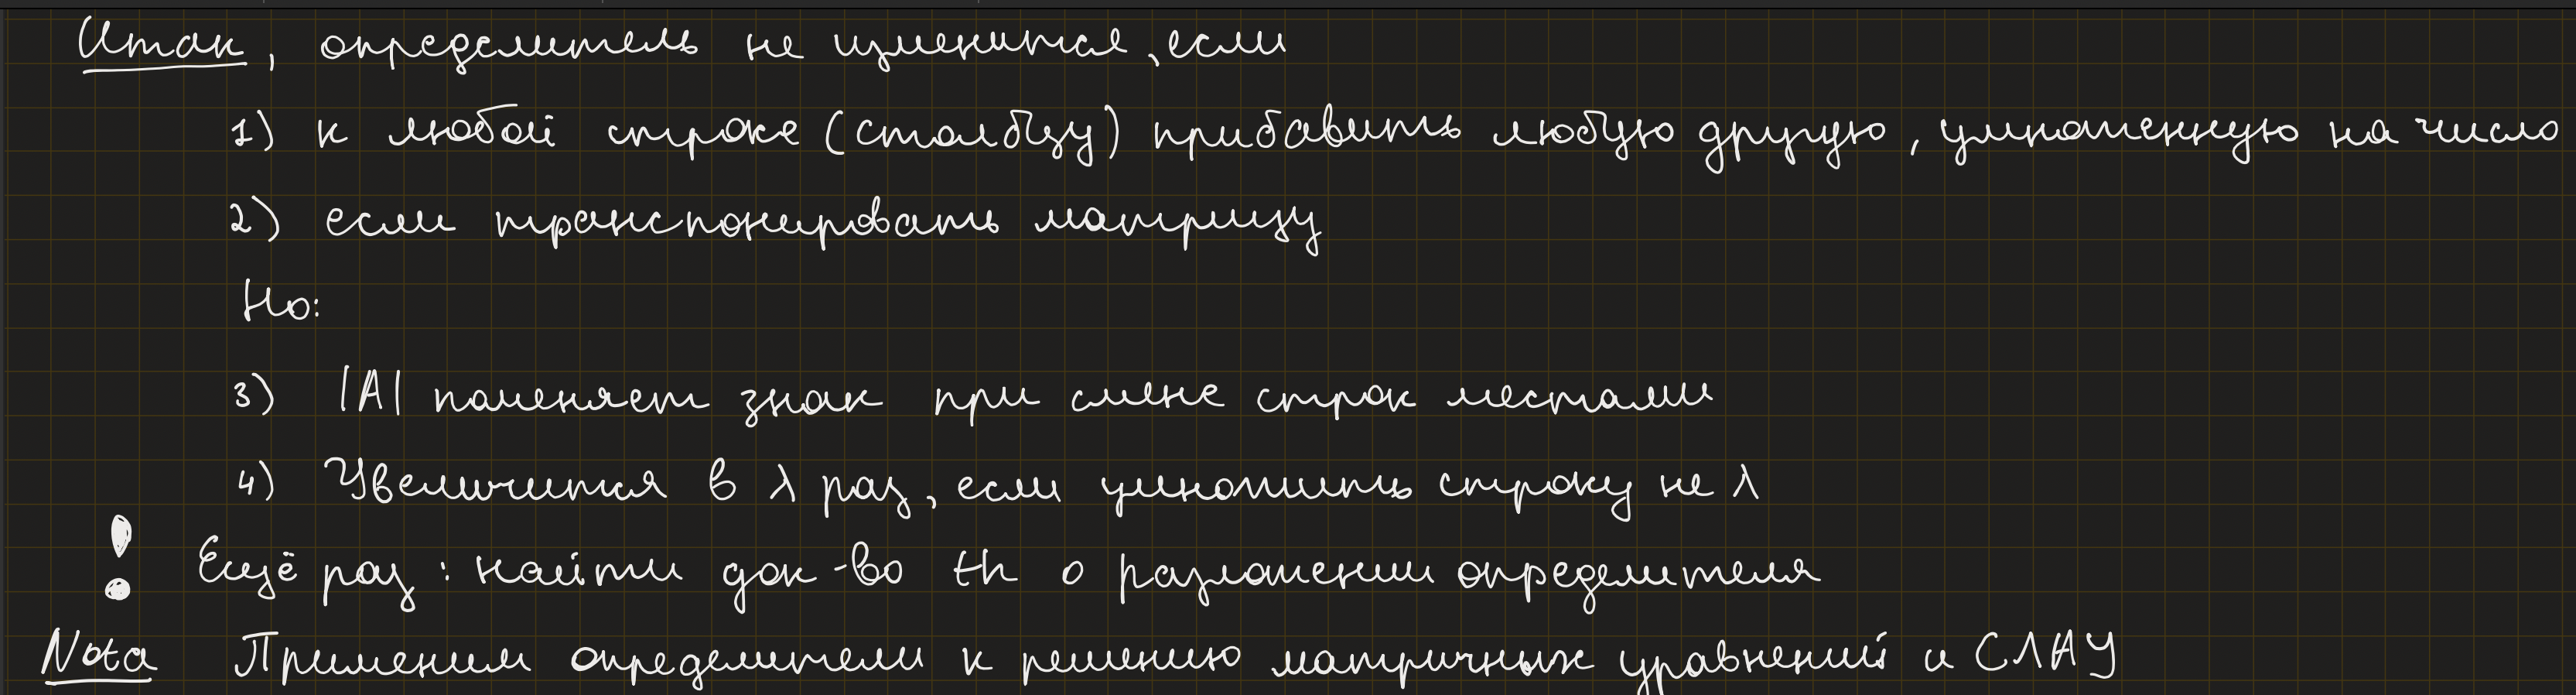 Итак, определитель не изменится, если
1) к любой строке (столбцу) прибавить любую другую, умноженную на число
2) если транспонировать матрицу
Но:
3) |A| поменяет знак при смене строк местами
4) Увеличится в λ раз, если умножить строку не λ
! Ещё раз: найти док-во th о разложении определителя
Nota Применим определители к решению матричных уравнений и СЛАУ